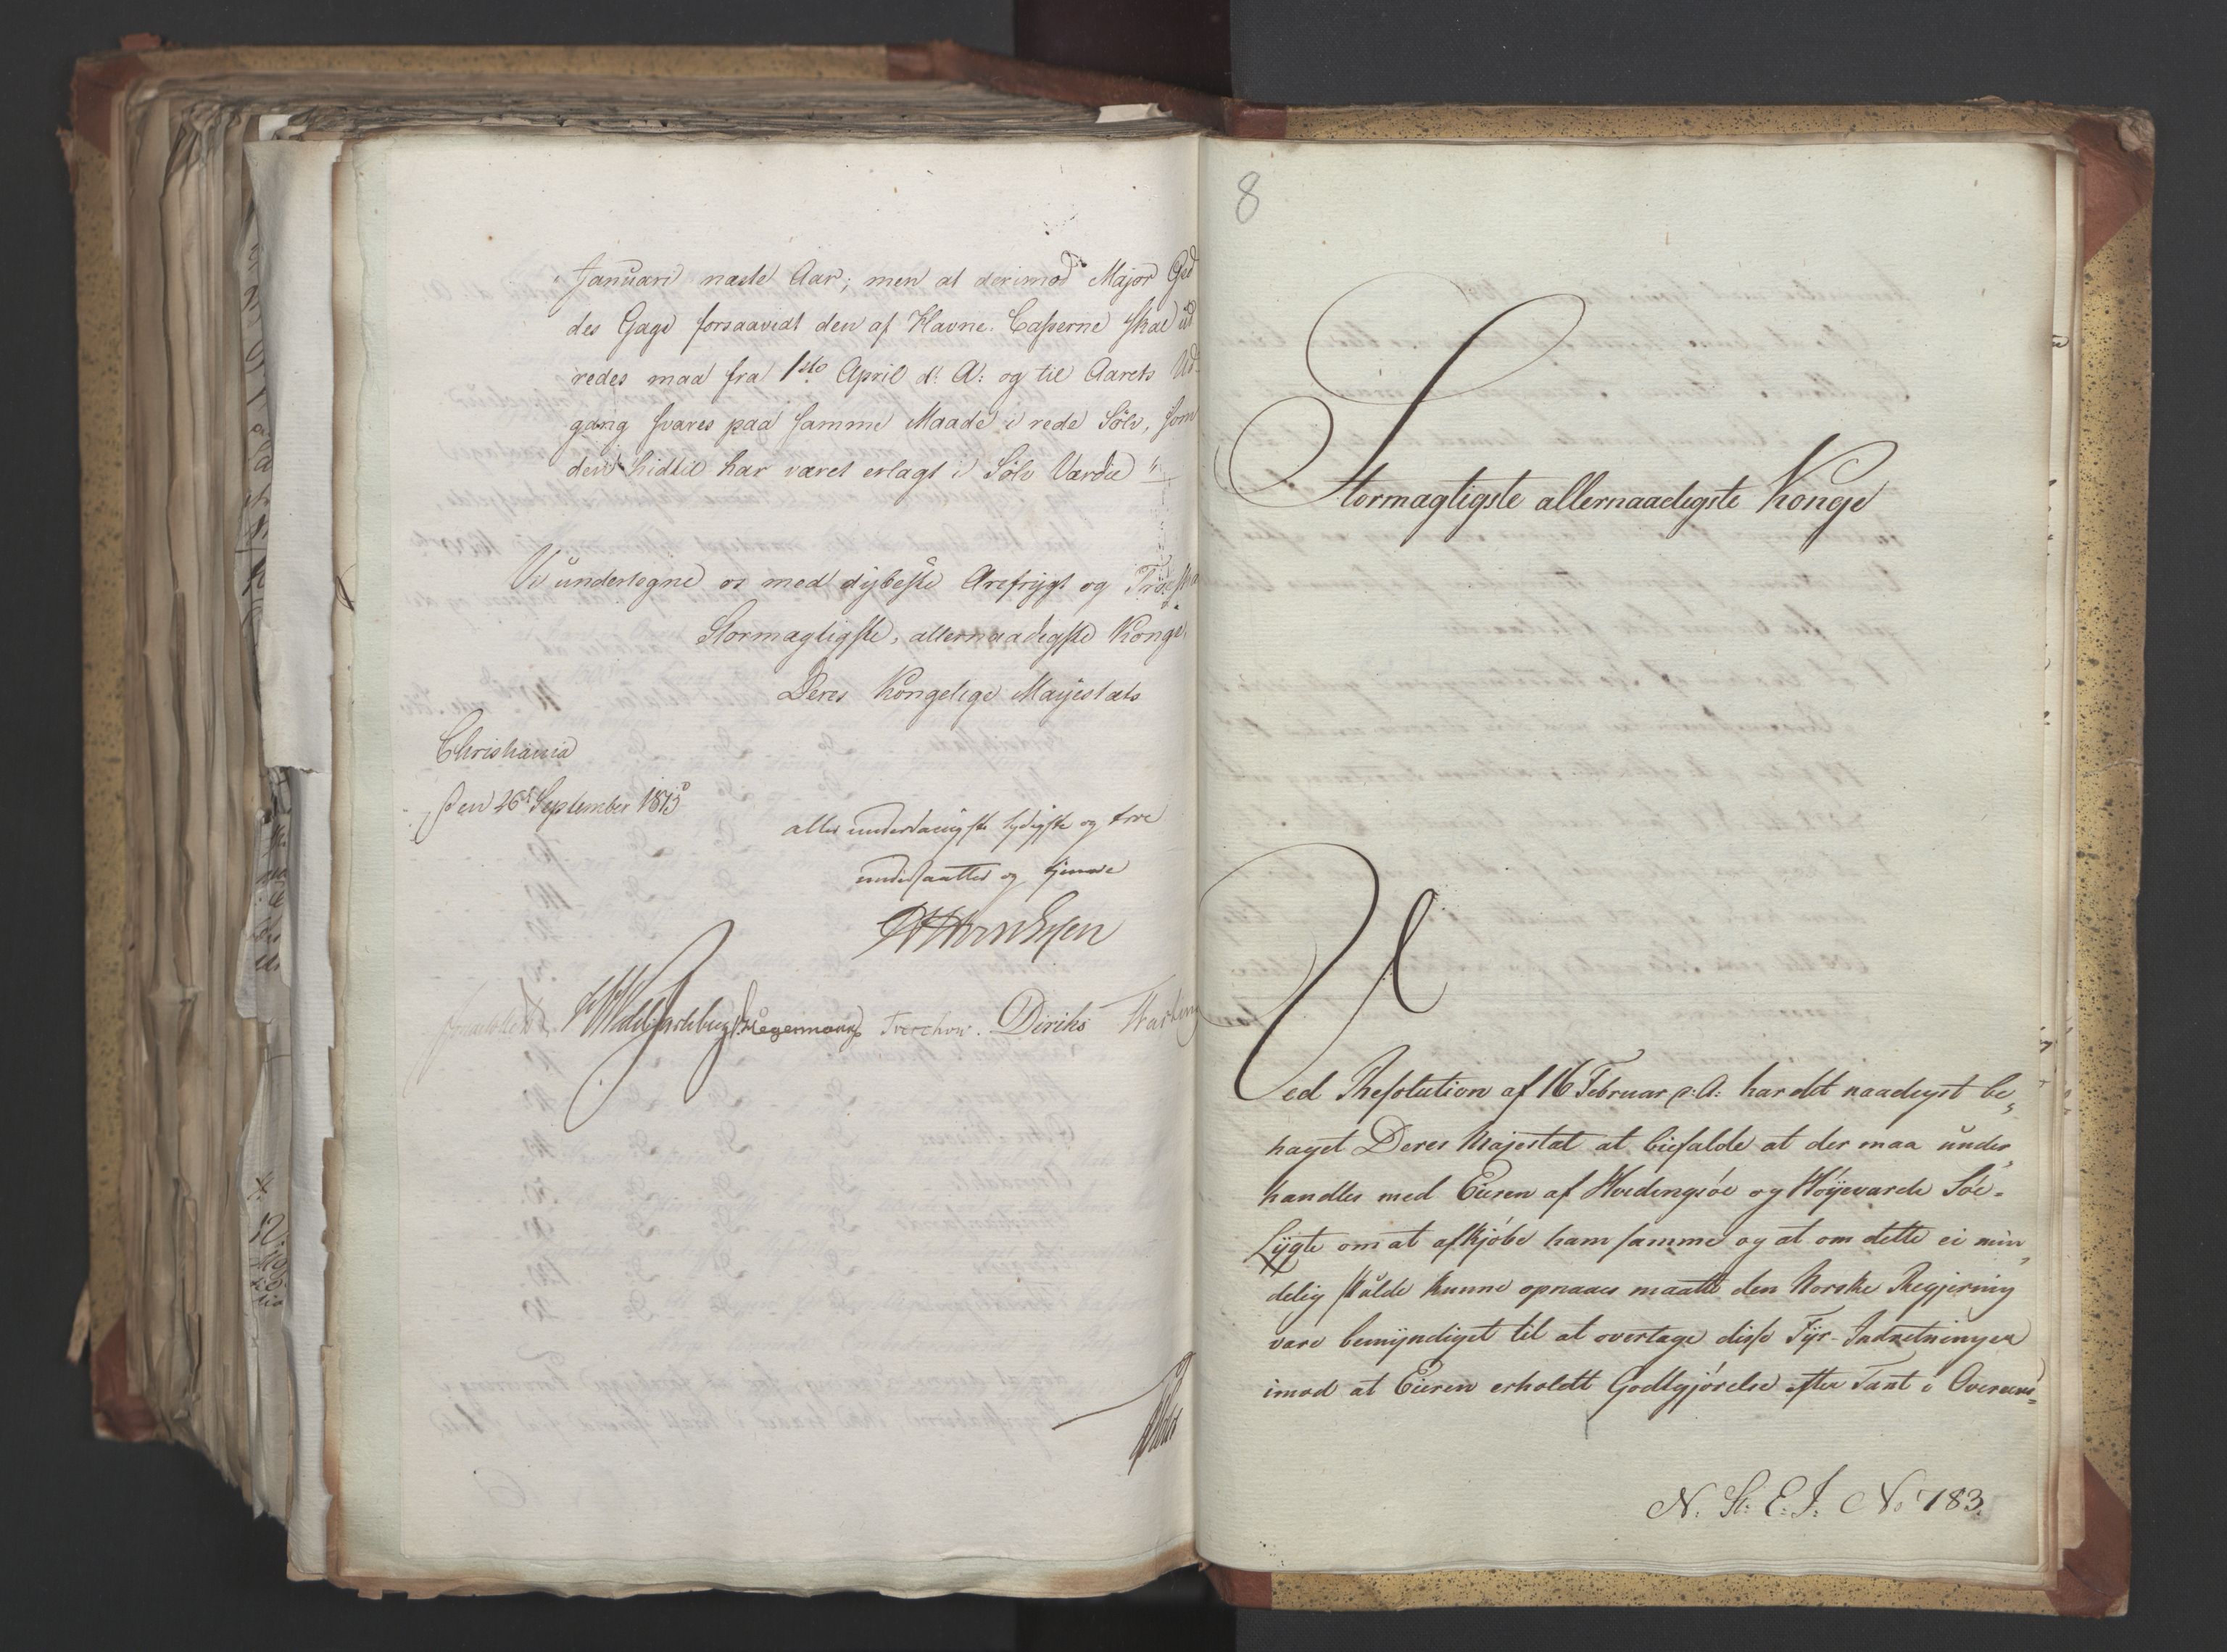 Januari næste Aar; men at derimod Major Ged
des Gage forsaavidt den af Havne-Casserne skal ud
redes maa fra 1ste April d: A: og til Aarets Ud-
gang svares paa samme Maade i rede Sölv, som
den hidtil har været erlagt i Sölv Værdie "
Vi undertegne os med dybeste Ærefrygt og
Stormægtigste, allernaadigste Konge
Deres Kongelige Majestæts
Christiania
den 26 September 1815
allerunderdanigste lydigste og troe
undersaatter og tjenere
Hegermann Treschow. Diriks
8
Stormægtigste allernaadigste Konge
Ved Resolution af 16 Februar d: A: har det naadigst be-
haget Deres Majestæt at bifalde at der maa under
handles med Eieren af Hvidingsöe og Höyevarde Söe-
Lygte om at afkjöbe ham samme og at om dette ei min
delig skulde kunne opnaaes maatte den Norske Regjering
være bemyndiget til at overtage disse Fyr-Indretninger
imod at Eieren erholdt Godtgjörelse efter Taxt i Overens-
N. St: E. J. No 783.